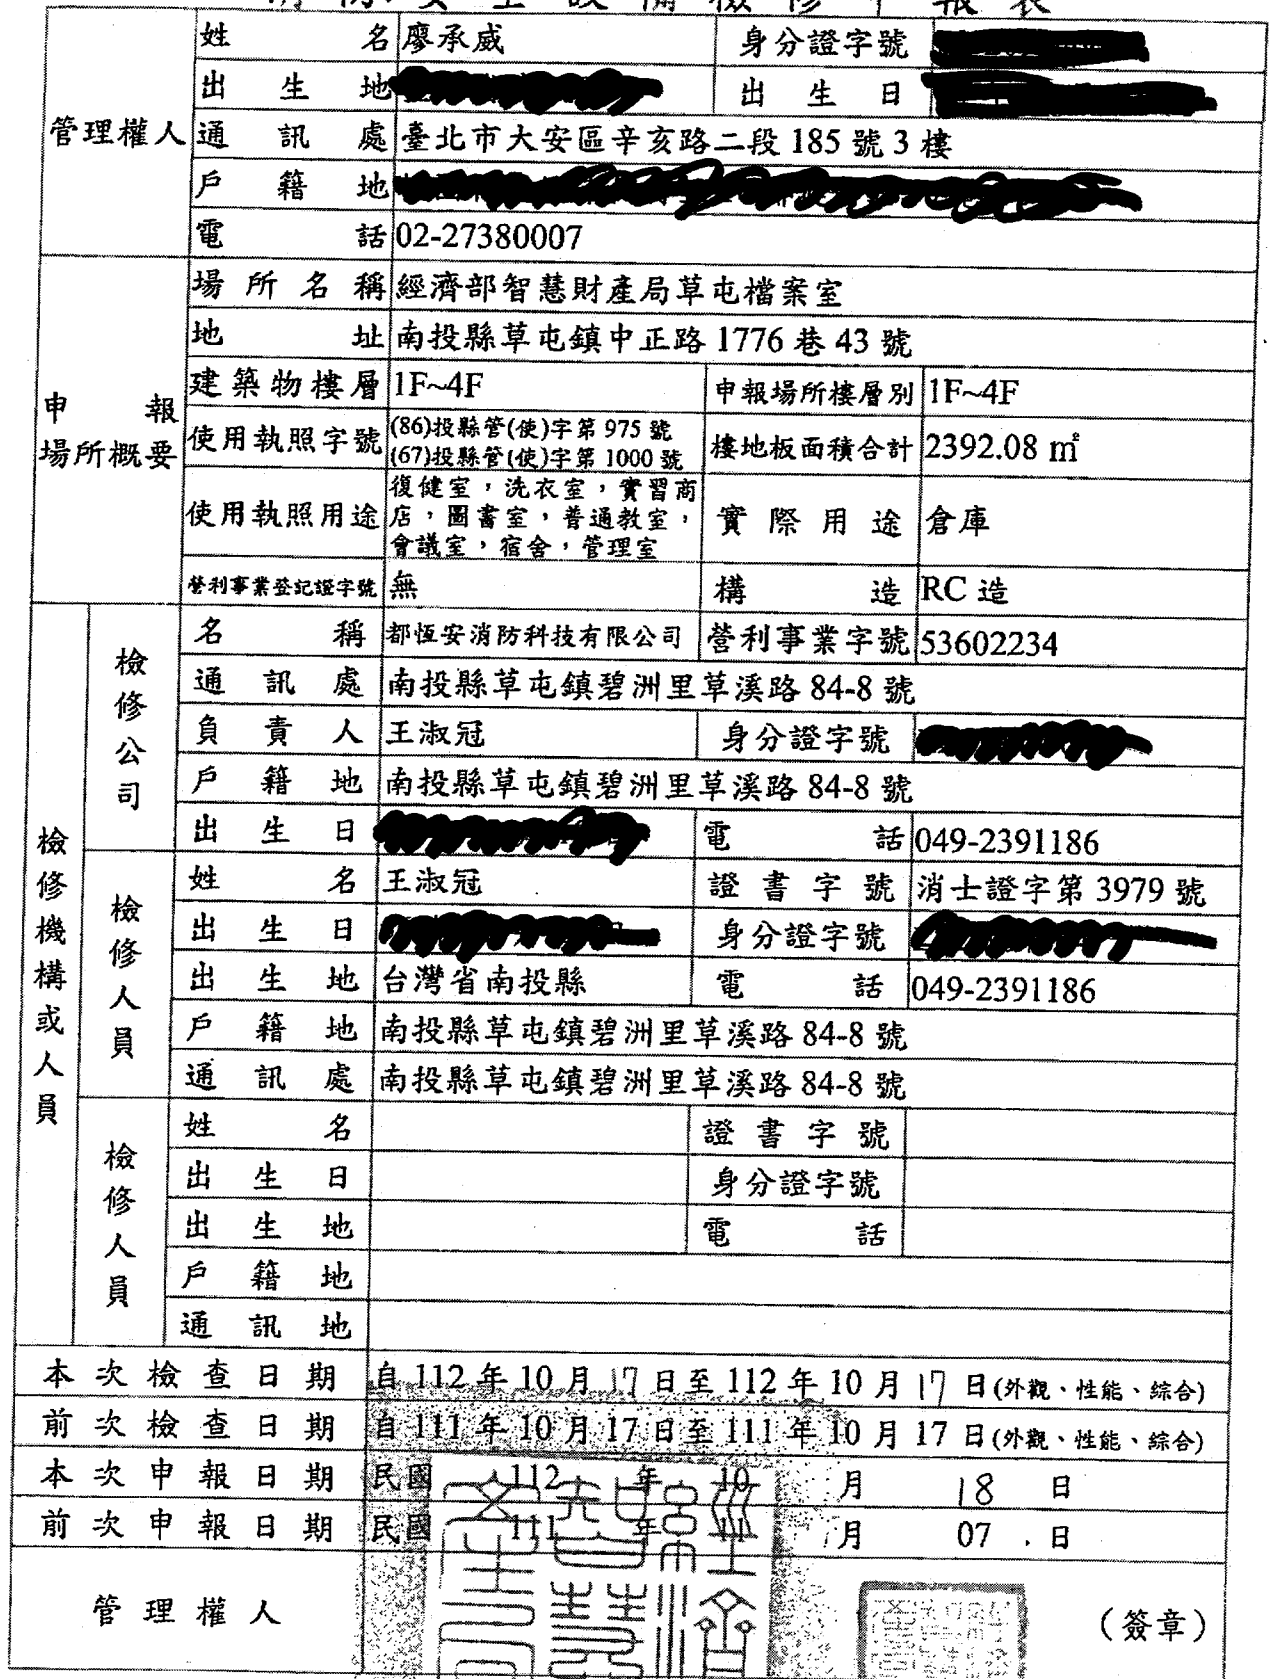 消防安全設備檢修申報表
管理權人
姓名 廖承威 身分證字號
出生地 出生日
通訊處 臺北市大安區辛亥路二段 185 號 3 樓
戶籍地
電話 02-27380007
申報場所概要
場所名稱 經濟部智慧財產局草屯檔案室
地址 南投縣草屯鎮中正路 1776 巷 43 號
建築物樓層 1F~4F 申報場所樓層別 1F~4F
使用執照字號 (86)投縣管(使)字第 975 號
(67)投縣管(使)字第 1000 號 樓地板面積合計 2392.08 ㎡
使用執照用途 復健室，洗衣室，實習商
店，圖書室，普通教室，
會議室，宿舍，管理室 實際用途 倉庫
營利事業登記證字號 無 構造 RC 造
檢修機構或人員
檢修公司
名稱 都恆安消防科技有限公司 營利事業字號 53602234
通訊處 南投縣草屯鎮碧洲里草溪路 84-8 號
負責人 王淑冠 身分證字號
戶籍地 南投縣草屯鎮碧洲里草溪路 84-8 號
出生日 電話 049-2391186
檢修人員
姓名 王淑冠 證書字號 消士證字第 3979 號
出生日 身分證字號
出生地 台灣省南投縣 電話 049-2391186
戶籍地 南投縣草屯鎮碧洲里草溪路 84-8 號
通訊處 南投縣草屯鎮碧洲里草溪路 84-8 號
檢修人員
姓名 證書字號
出生日 身分證字號
出生地 電話
戶籍地
通訊地
本次檢查日期 自 112 年 10 月 17 日至 112 年 10 月 17 日(外觀、性能、綜合)
前次檢查日期 自 111 年 10 月 17 日至 111 年 10 月 17 日(外觀、性能、綜合)
本次申報日期 民國 112 年 10 月 18 日
前次申報日期 民國 111 年 11 月 07 日
管理權人 (簽章)